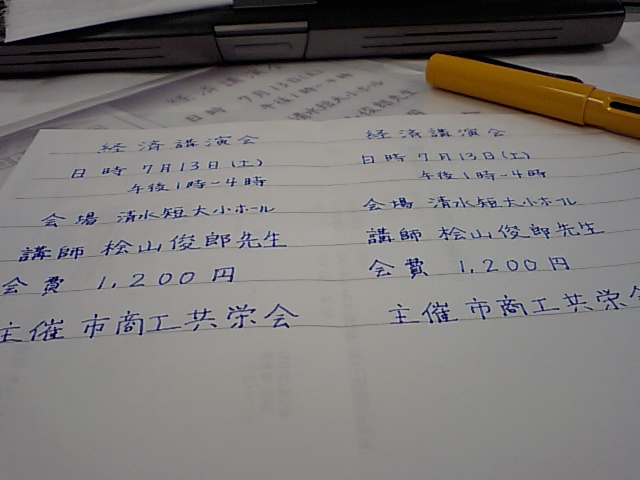 経済講演会
日時 7月13日(土)
午後1時-4時
会場 清水短大小ホール
講師 桧山俊郎先生
会費 1,200円
主催 市商工共栄会
経済講演会
日時 7月13日(土)
午後1時-4時
会場 清水短大小ホール
講師 桧山俊郎先生
会費 1,200円
主催 市商工共栄会
経済講演会
日時 7月13日(土)
午後1時-4時
清水短大小ホール
先生